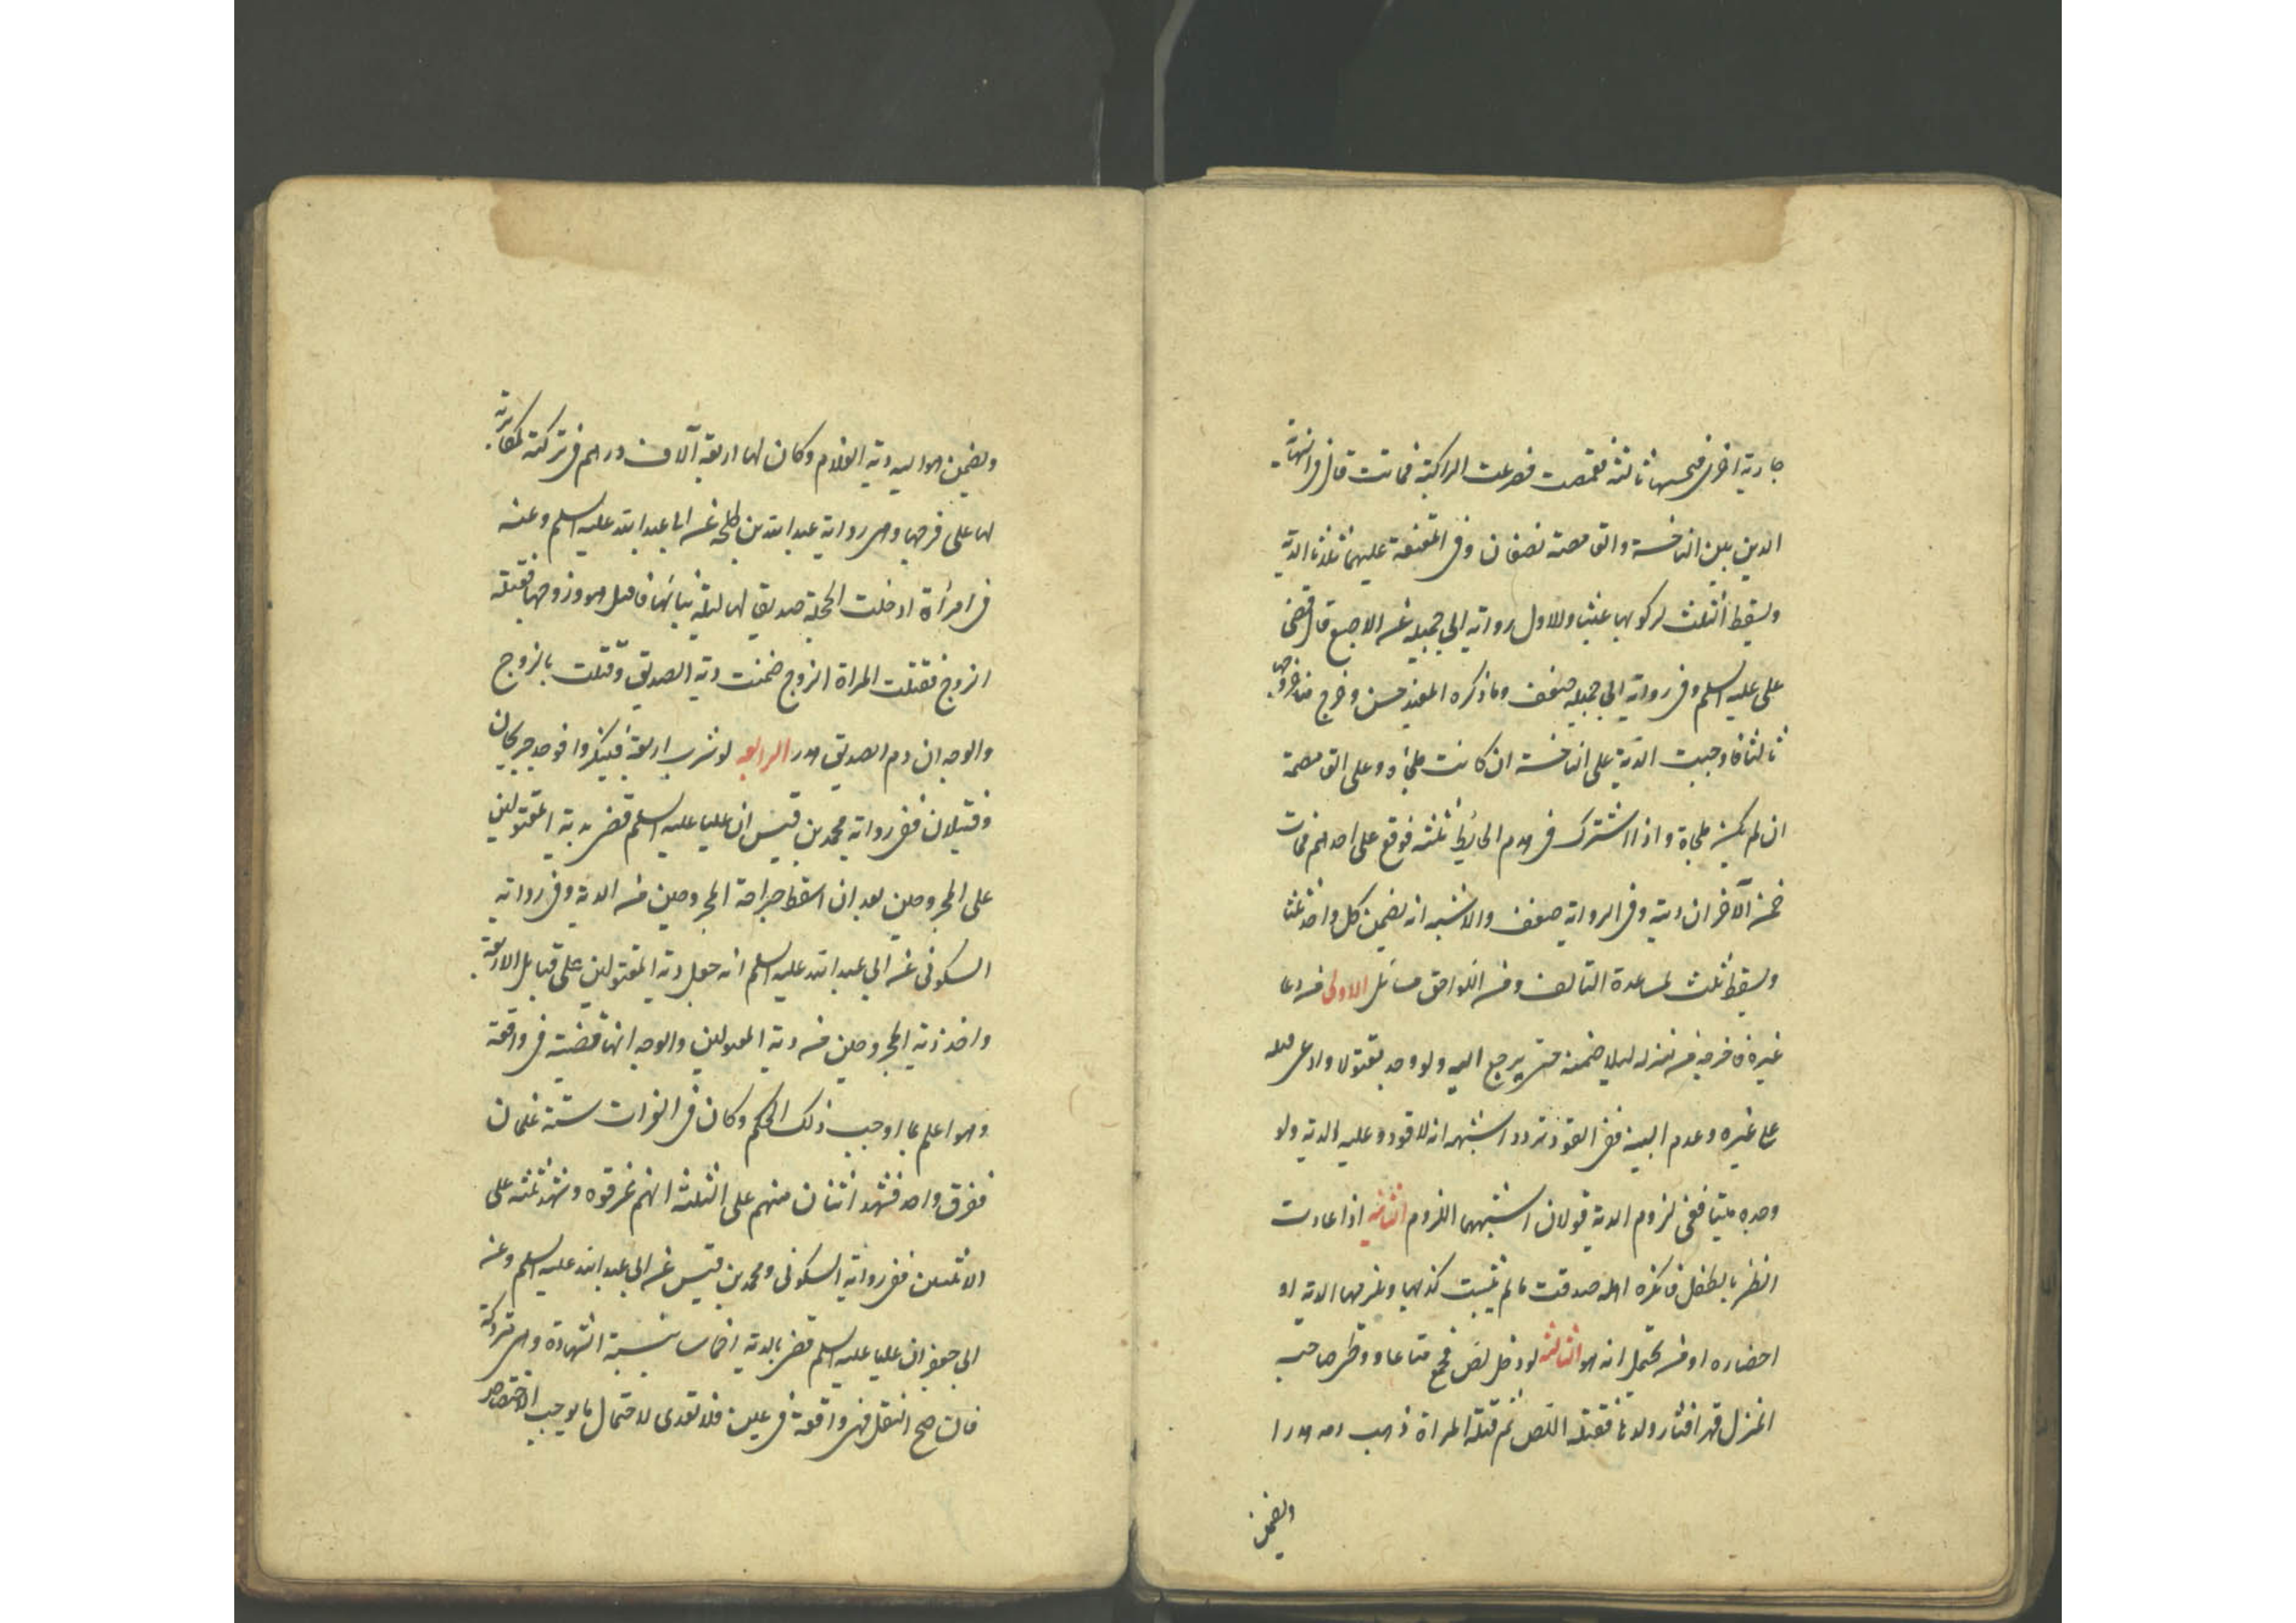 جارية اخرى فنخستها ثالثة فقمصت فصرعت الراكبة فماتت قال في النهاية
الدية بين الناخسة والقامصة نصفان وفي المقنعة عليهما ثلثا الدية
ويسقط الثلث لركوبها عبثا والاول رواية ابي جميلة عن الاصبغ قال قضى
علي عليه السلم وفي رواية ابي جميلة ضعف وما ذكره المفيد حسن وخرج متاخر وجها
ثالثا فاوجب الدية على الناخسة ان كانت ملجاة وعلى القامصة
ان لم يكن ملجاة واذا اشترك في هدم الحائط ثلثة فوقع على احدهم فمات
ضمن الآخران ديته وفي الرواية ضعف والاشبه انه يضمن كل واحد ثلثا
ويسقط ثلث لمساعدة التالف ومن اللواحق مسائل الاولى من دعا
غيره فاخرجه من منزله ليلا ضمنه حتى يرجع اليه ولو وجد مقتولا وادعى قتله
على غيره وعدم البينة ففي القود تردد اشبهه انه لا قود وعليه الدية ولو
وجد ميتا ففي لزوم الدية قولان اشبههما اللزوم الثانية اذا عادت
الظئر بالطفل فانكره اهله صدقت ما لم يثبت كذبها ويلزمها الدية او
احضاره او من يحتمل انه هو الثالثة لو دخل لص فجمع متاعا ووطئ صاحبة
المنزل قهرا فثار ولدها فقتله اللص ثم قتلته المراة ذهب دمه هدرا
ويضمن
ويضمن مواليه دية الغلام وكان لها اربعة آلاف درهم في تركته لمكابرته
لها على فرجها وهي رواية عبد الله بن طلحة عن ابا عبد الله عليه السلم وعنه
في امرأة ادخلت الحجلة صديق لها ليلة بنائها فاقتتل هو وزوجها فقتله
الزوج فقتلت المراة الزوج ضمنت دية الصديق وقتلت بالزوج
والوجه ان دم الصديق هدر الرابعة لو شرب اربعة فيسكروا فوجد جريحان
وقتيلان ففي رواية محمد بن قيس ان عليا عليه السلم قضى بدية المقتولين
على المجروحين بعد ان اسقط جراحة المجروحين من الدية وفي رواية
السكوني عن ابي عبد الله عليه السلم انه جعل دية المقتولين على قبايل الاربعة
واخذ دية المجروحين من دية المقتولين والوجه انها قضية في واقعة
وهو اعلم بما اوجب ذلك الحكم وكان في الفرات ستة غلمان
فغرق واحد فشهد اثنان منهم على الثلثة انهم غرقوه وشهد ثلثة على
الاثنين ففي رواية السكوني ومحمد بن قيس عن ابي عبد الله عليه السلم وعن
ابي جعفر ان عليا عليه السلم قضى بالدية اخماسا بنسبة الشهادة وهي متروكة
فان صح النقل فهي واقعة في عين فلا تعدى لاحتمال ما يوجب الاختصاص